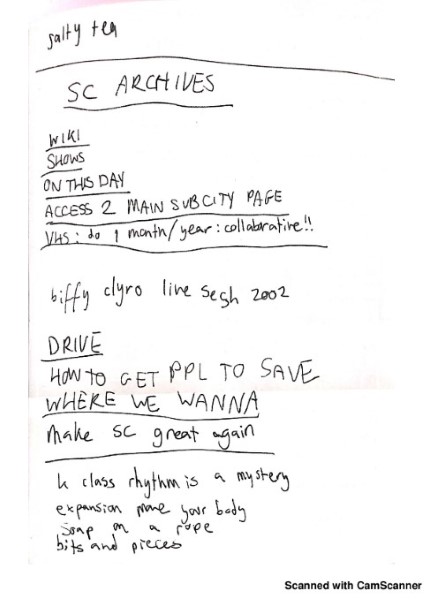 salty tea
SC ARCHIVES
WIKI
SHOWS
ON THIS DAY
ACCESS 2 MAIN SUBCITY PAGE
VHS: do 1 month/year: collaborative!!
biffy clyro live sesh 2002
DRIVE
HOW TO GET PPL TO SAVE
WHERE WE WANNA
make SC great again
k class rhythm is a mystery
expansion move your body
soap on a rope
bits and pieces
Scanned with CamScanner